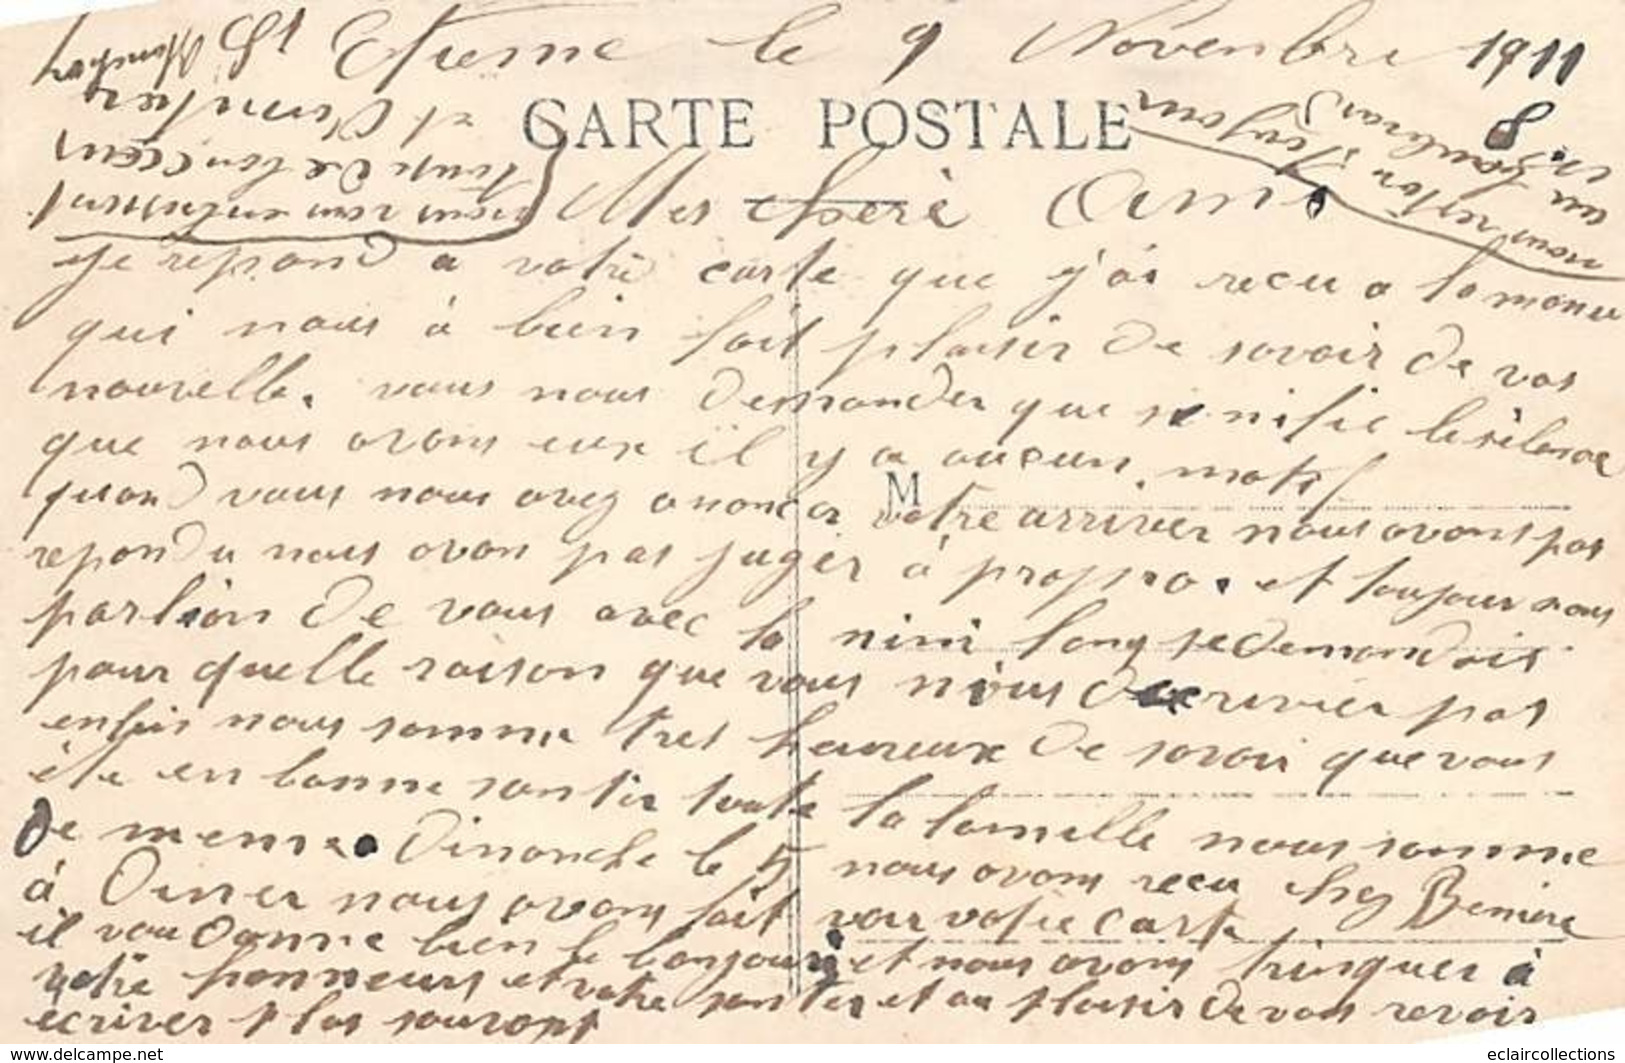 St Etienne le 9 Novenbre 1911
CARTE POSTALE
8
Mes cherè Ami.
je repond a votre carte que j'ai recu a la manu
qui nous à bien fait plaisir de savoir de vos
nouvelle. vous nous demander que sinifie le silence
que nous avons eux il y a aucun motif
M
quand vous nous avez anoncer votre arriver nous avons pas
repondu nous avon pas juger à propro. et toujour nous
parlion de vous avec la nini long se demandais
pour quelle raison que vous nous ecrivier pas
enfin nous somme tres heureux de savoir que vous
ète en bonne santer toute la famille nous somme
de meme. Dimanche le 5 nous avons recu chez Beniere
à nous avons fait voir votre carte
il vou donne bien le bonjour et nous avons trinquer à
votre honneurs et votre santer et au plaisir de vous revoir
ecriver plus souvant
nous vous enbrassent
tous de bon cœur
et
nous reston toujour
au
delcampe.net
eclaircollections